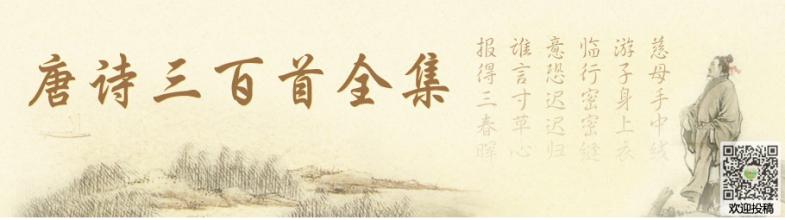 唐诗三百首全集
慈母手中线
游子身上衣
临行密密缝
意恐迟迟归
谁言寸草心
报得三春晖
欢迎投稿